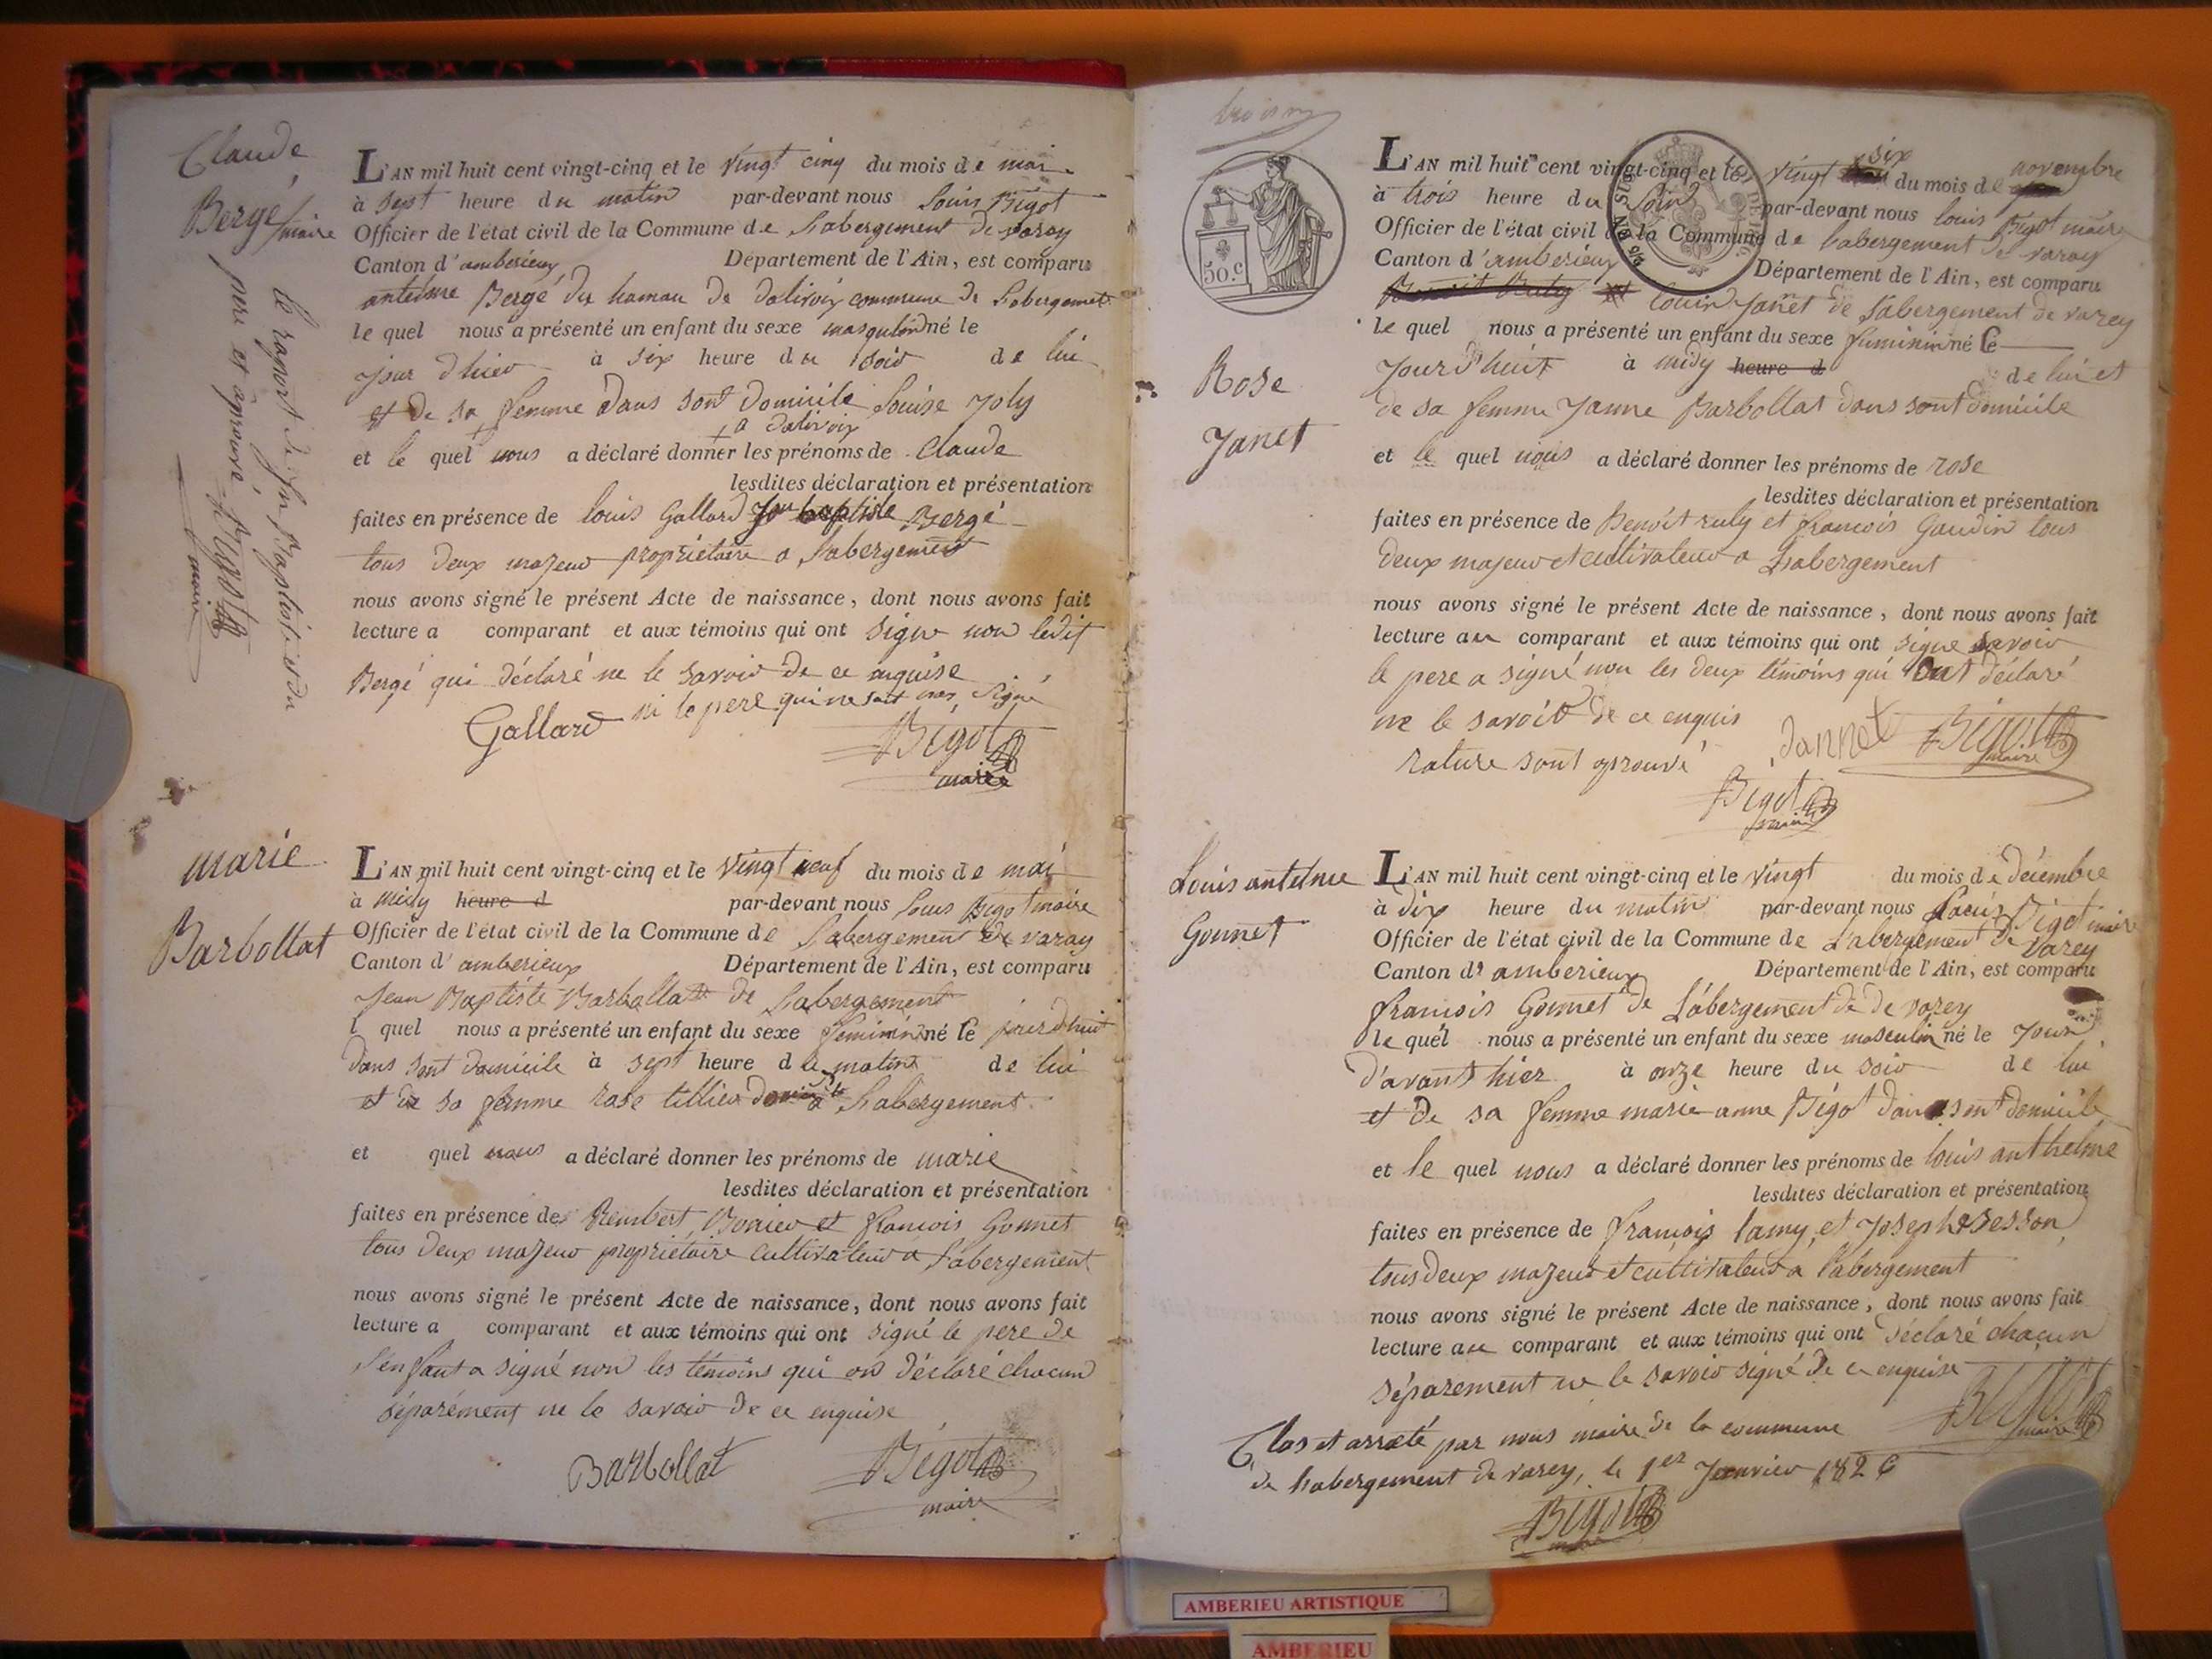 Claude
Bergé
L'AN mil huit cent vingt-cinq et le vingt cinq du mois de mai
à sept heure du matin par-devant nous Louis Bigot
maire Officier de l'état civil de la Commune de Labergement de varay
Canton d'amberieux Département de l'Ain, est comparu
antelme Bergé du hamau de dalivoix commune de Labergement
le quel nous a présenté un enfant du sexe masqulin né le
jour d'hier à six heure du soir de lui
et de sa femme dans sont domicile Louise Joly
a dalivoix
et le quel nous a déclaré donner les prénoms de Claude
lesdites déclaration et présentation
faites en présence de louis Gallard Jn baptiste Bergé
tous deux majeur propriétaire a Labergement
nous avons signé le présent Acte de naissance, dont nous avons fait
lecture a comparant et aux témoins qui ont signe non ledit
Bergé qui déclaré ne le savoir de ce anquise
ni le pere qui ne sait pas signé
Gallard Bigot
maire
le raport de Jn Baptiste et du
pere et aprouvé Bigot
maire
marie
Barbollat
L'AN mil huit cent vingt-cinq et le vingt neuf du mois de mai
à midy heure d par-devant nous Louis Bigot maire
Officier de l'état civil de la Commune de Labergement de varay
Canton d'amberieux Département de l'Ain, est comparu
Jean Baptiste Barbollat de Labergement
l quel nous a présenté un enfant du sexe feminin né le jourdhuit
dans sont domicile à sept heure de matin de lui
et de sa femme rose tillier domicile a Labergement
et quel nous a déclaré donner les prénoms de marie
lesdites déclaration et présentation
faites en présence de Rembert Bonier et francois Gonnet
tous deux majeur propriétaire cultivateur a Labergement
nous avons signé le présent Acte de naissance, dont nous avons fait
lecture a comparant et aux témoins qui ont signé le pere de
l'enfant a signé non les témoins qui on déclaré chacun
séparément ne le savoir de ce enquise
Barbollat Bigot
maire
50.c
Rose
Janet
L'AN mil huit cent vingt-cinq et le vingt six du mois de novembre
à trois heure du soir par-devant nous louis Bigot maire
Officier de l'état civil de la Commune de labergement de varay
Canton d'amberieux Département de l'Ain, est comparu
Benoit Ruty louis Janet de Labergement de varey
le quel nous a présenté un enfant du sexe feminin né le
jourdhuit à midy heure d de lui et
de sa femme Janne Barbollat dans sont domicile
et le quel nous a déclaré donner les prénoms de rose
lesdites déclaration et présentation
faites en présence de Benoit ruty et francois Gaudin tous
deux majeur et cultivateur a Labergement
nous avons signé le présent Acte de naissance, dont nous avons fait
lecture au comparant et aux témoins qui ont signe savoir
le pere a signé non les deux témoins qui ont déclaré
ne le savoir de ce enquis
rature sont aprouvé Jannet Bigot
maire
Bigot
maire
Louis antelme
Gonnet
L'AN mil huit cent vingt-cinq et le vingt du mois de décembre
à dix heure du matin par-devant nous Louis Bigot maire
Officier de l'état civil de la Commune de L'abergement de varey
Canton d'amberieux Département de l'Ain, est comparu
francois Gonnet de Labergement de de varey
le quel nous a présenté un enfant du sexe masculin né le jour
d'avant hier à onze heure du soir de lui
et de sa femme marie anne Bigot dans sont domicile
et le quel nous a déclaré donner les prénoms de louis anthelme
lesdites déclaration et présentation
faites en présence de francois lamy et Joseph
tous deux majeur et cultivateur a labergement
nous avons signé le présent Acte de naissance, dont nous avons fait
lecture au comparant et aux témoins qui ont déclaré chacun
séparement ne le savoir signé de ce enquise
Bigot
maire
Clos et arreté par nous maire de la commune
de Labergement de varey, le 1er Janvier 1826
Bigot
maire
AMBERIEU ARTISTIQUE
AMBERIEU